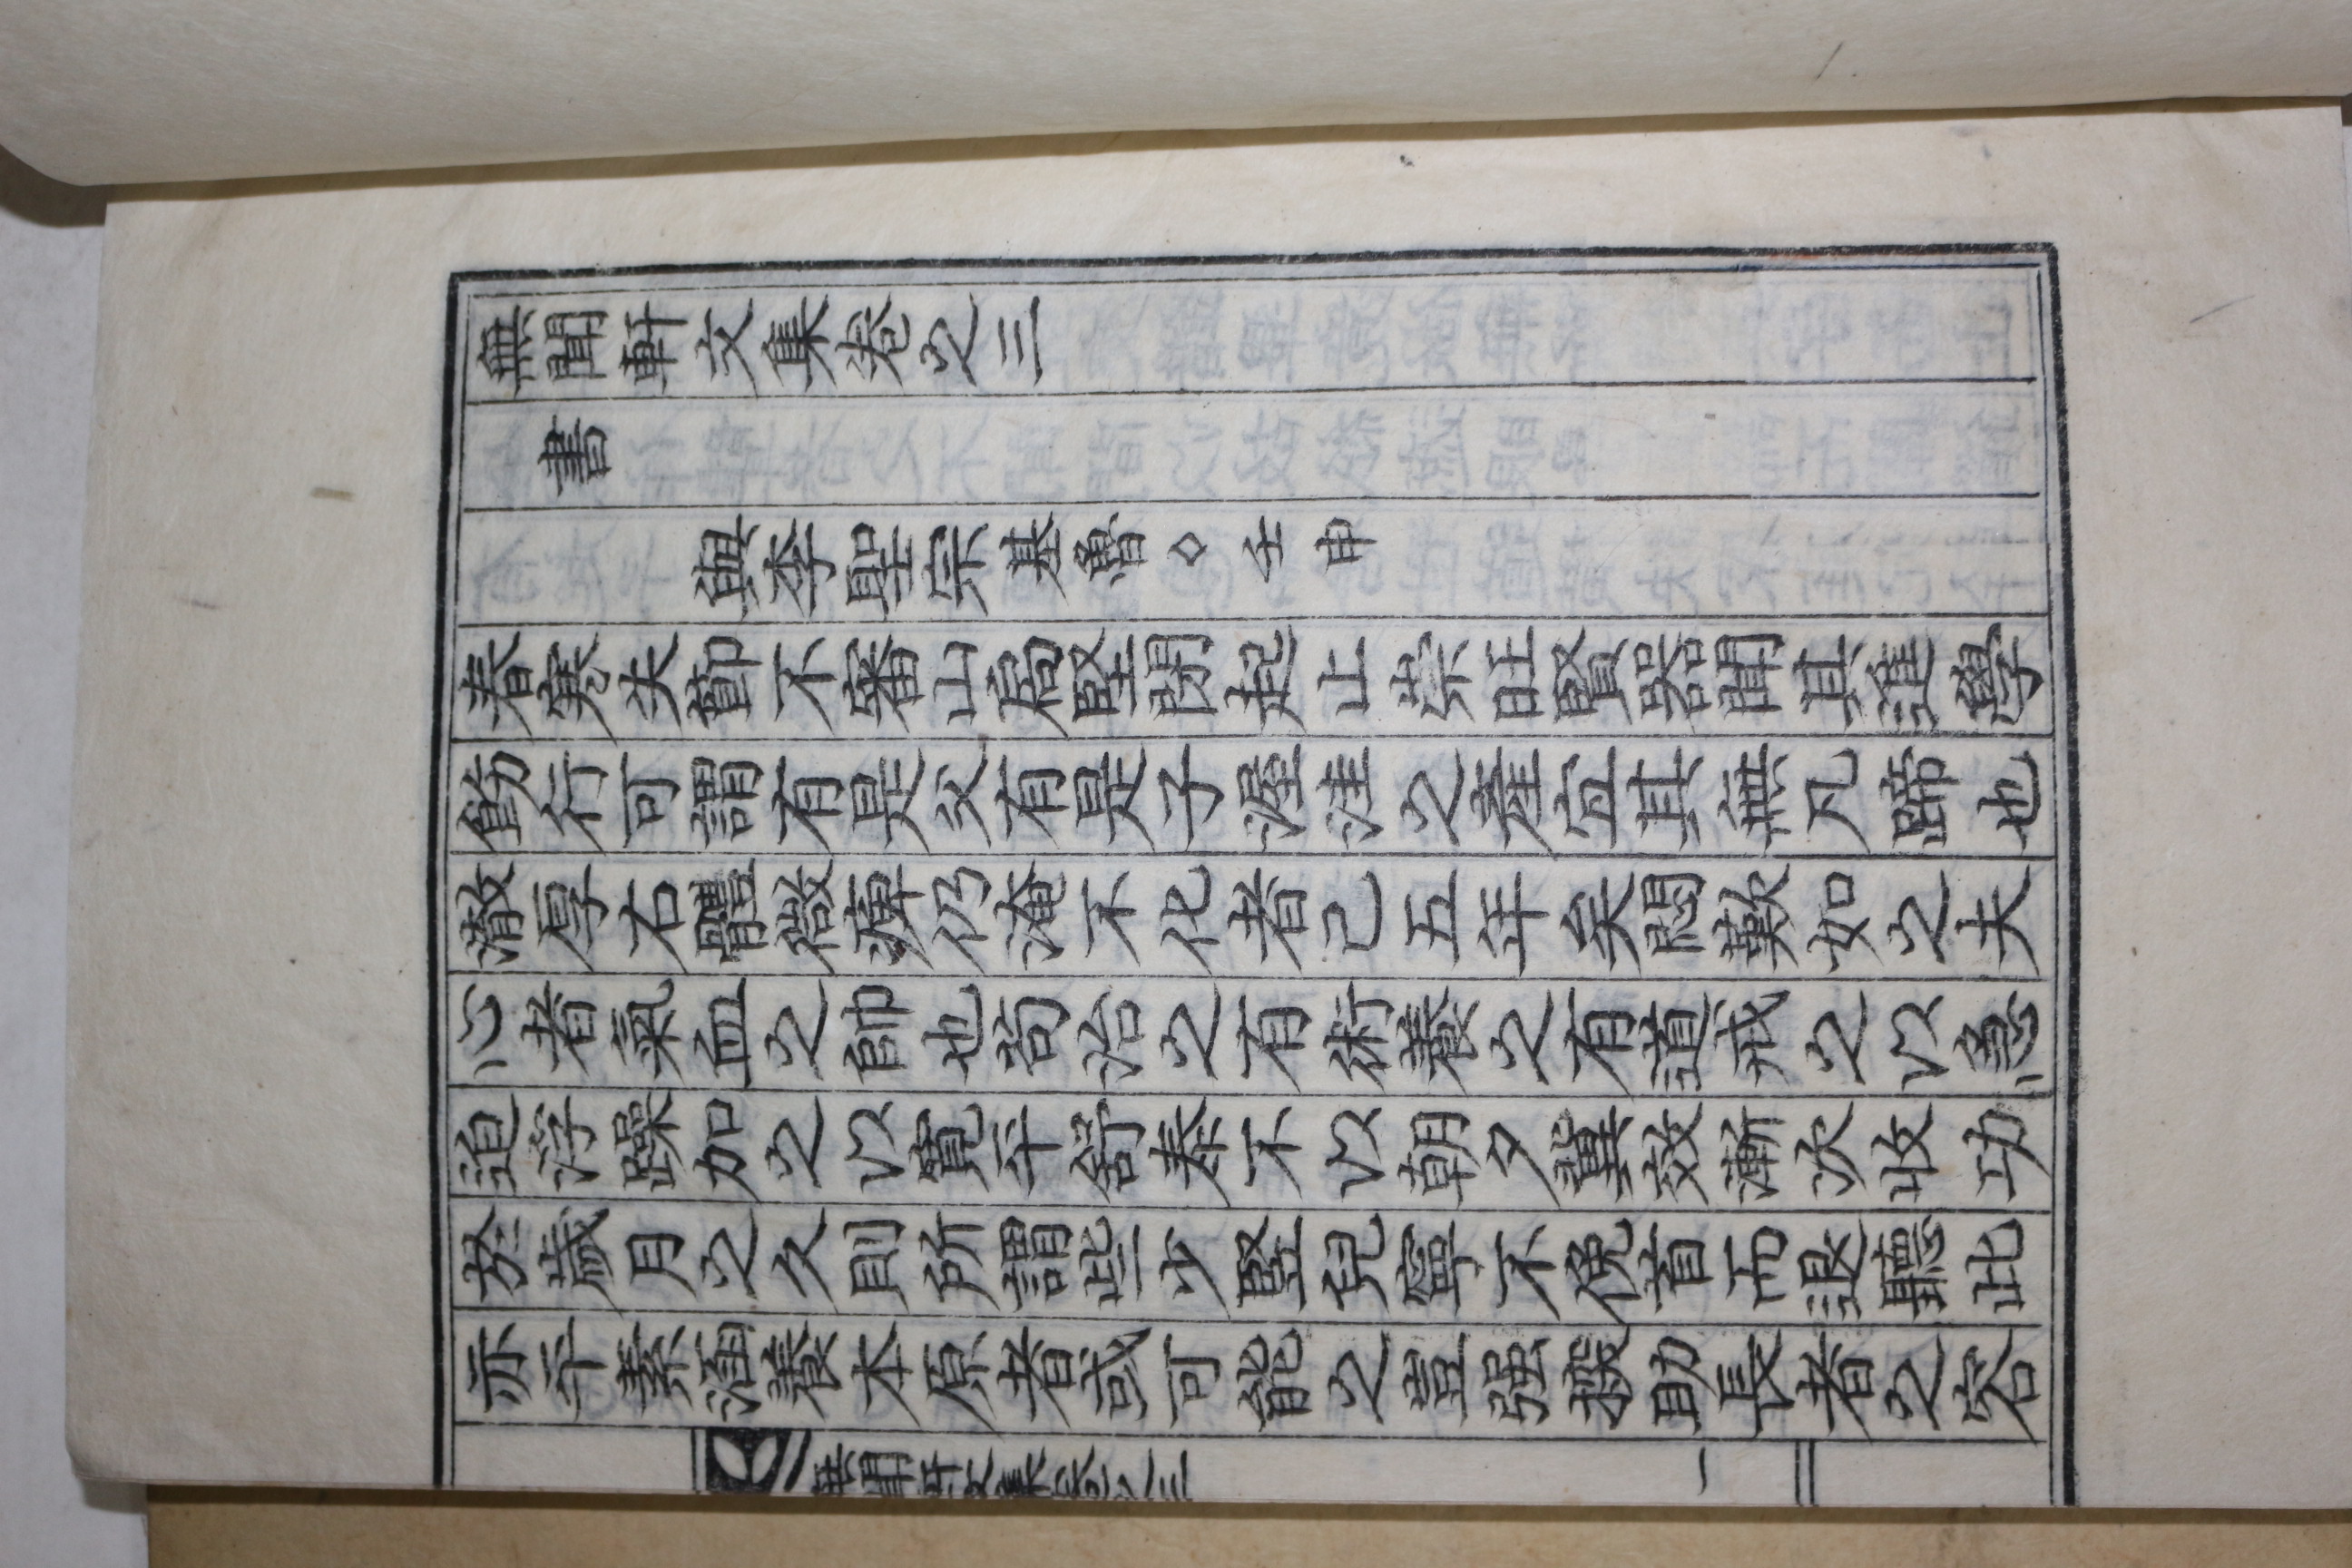 無聞軒文集卷之三
書
與李聖宗基魯◇壬申
春寒失節不審山扃堅閉起止崇旺賢器聞其進學
飭行可謂有是父有是子渥洼之產宜其無凡蹄也
澈厚右體微痺仍淹不化者已五年矣悶歎如之夫
心者氣血之帥也苟治之有術養之有道戒之以急
迫浮躁加之以寬平舒泰不以朝夕冀效漸次收功
於歲月之久則所謂些少竪兒寧不俛首而退聽此
亦平素涵養本原者或可能之豈强揆助長者之容
無聞軒文集卷之三
一